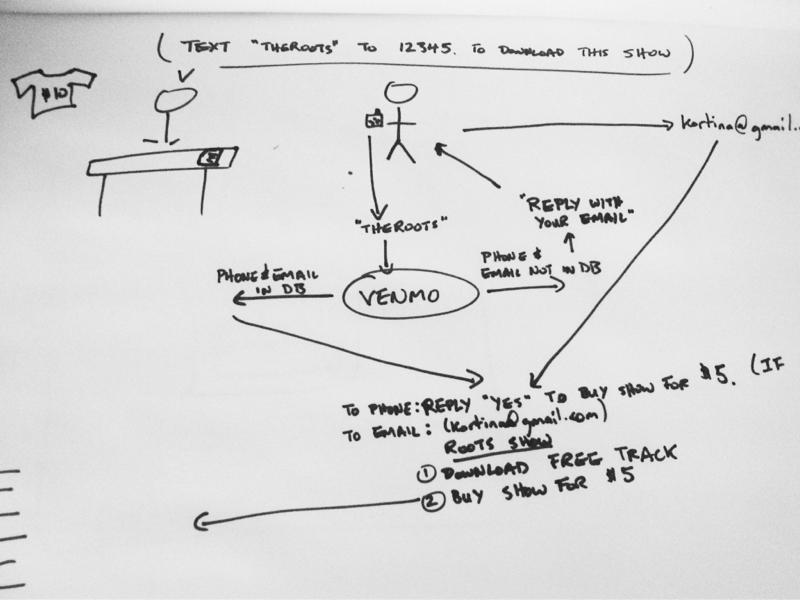 (TEXT "THEROOTS" TO 12345. TO DOWNLOAD THIS SHOW)
$10
kortina@gmail.
"REPLY WITH
YOUR EMAIL"
"THEROOTS"
PHONE &
EMAIL NOT IN DB
PHONE & EMAIL
IN DB
VENMO
TO PHONE: REPLY "YES" TO BUY SHOW FOR $5. (IF
TO EMAIL: (kortina@gmail.com)
ROOTS SHOW
① DOWNLOAD FREE TRACK
② BUY SHOW FOR $5